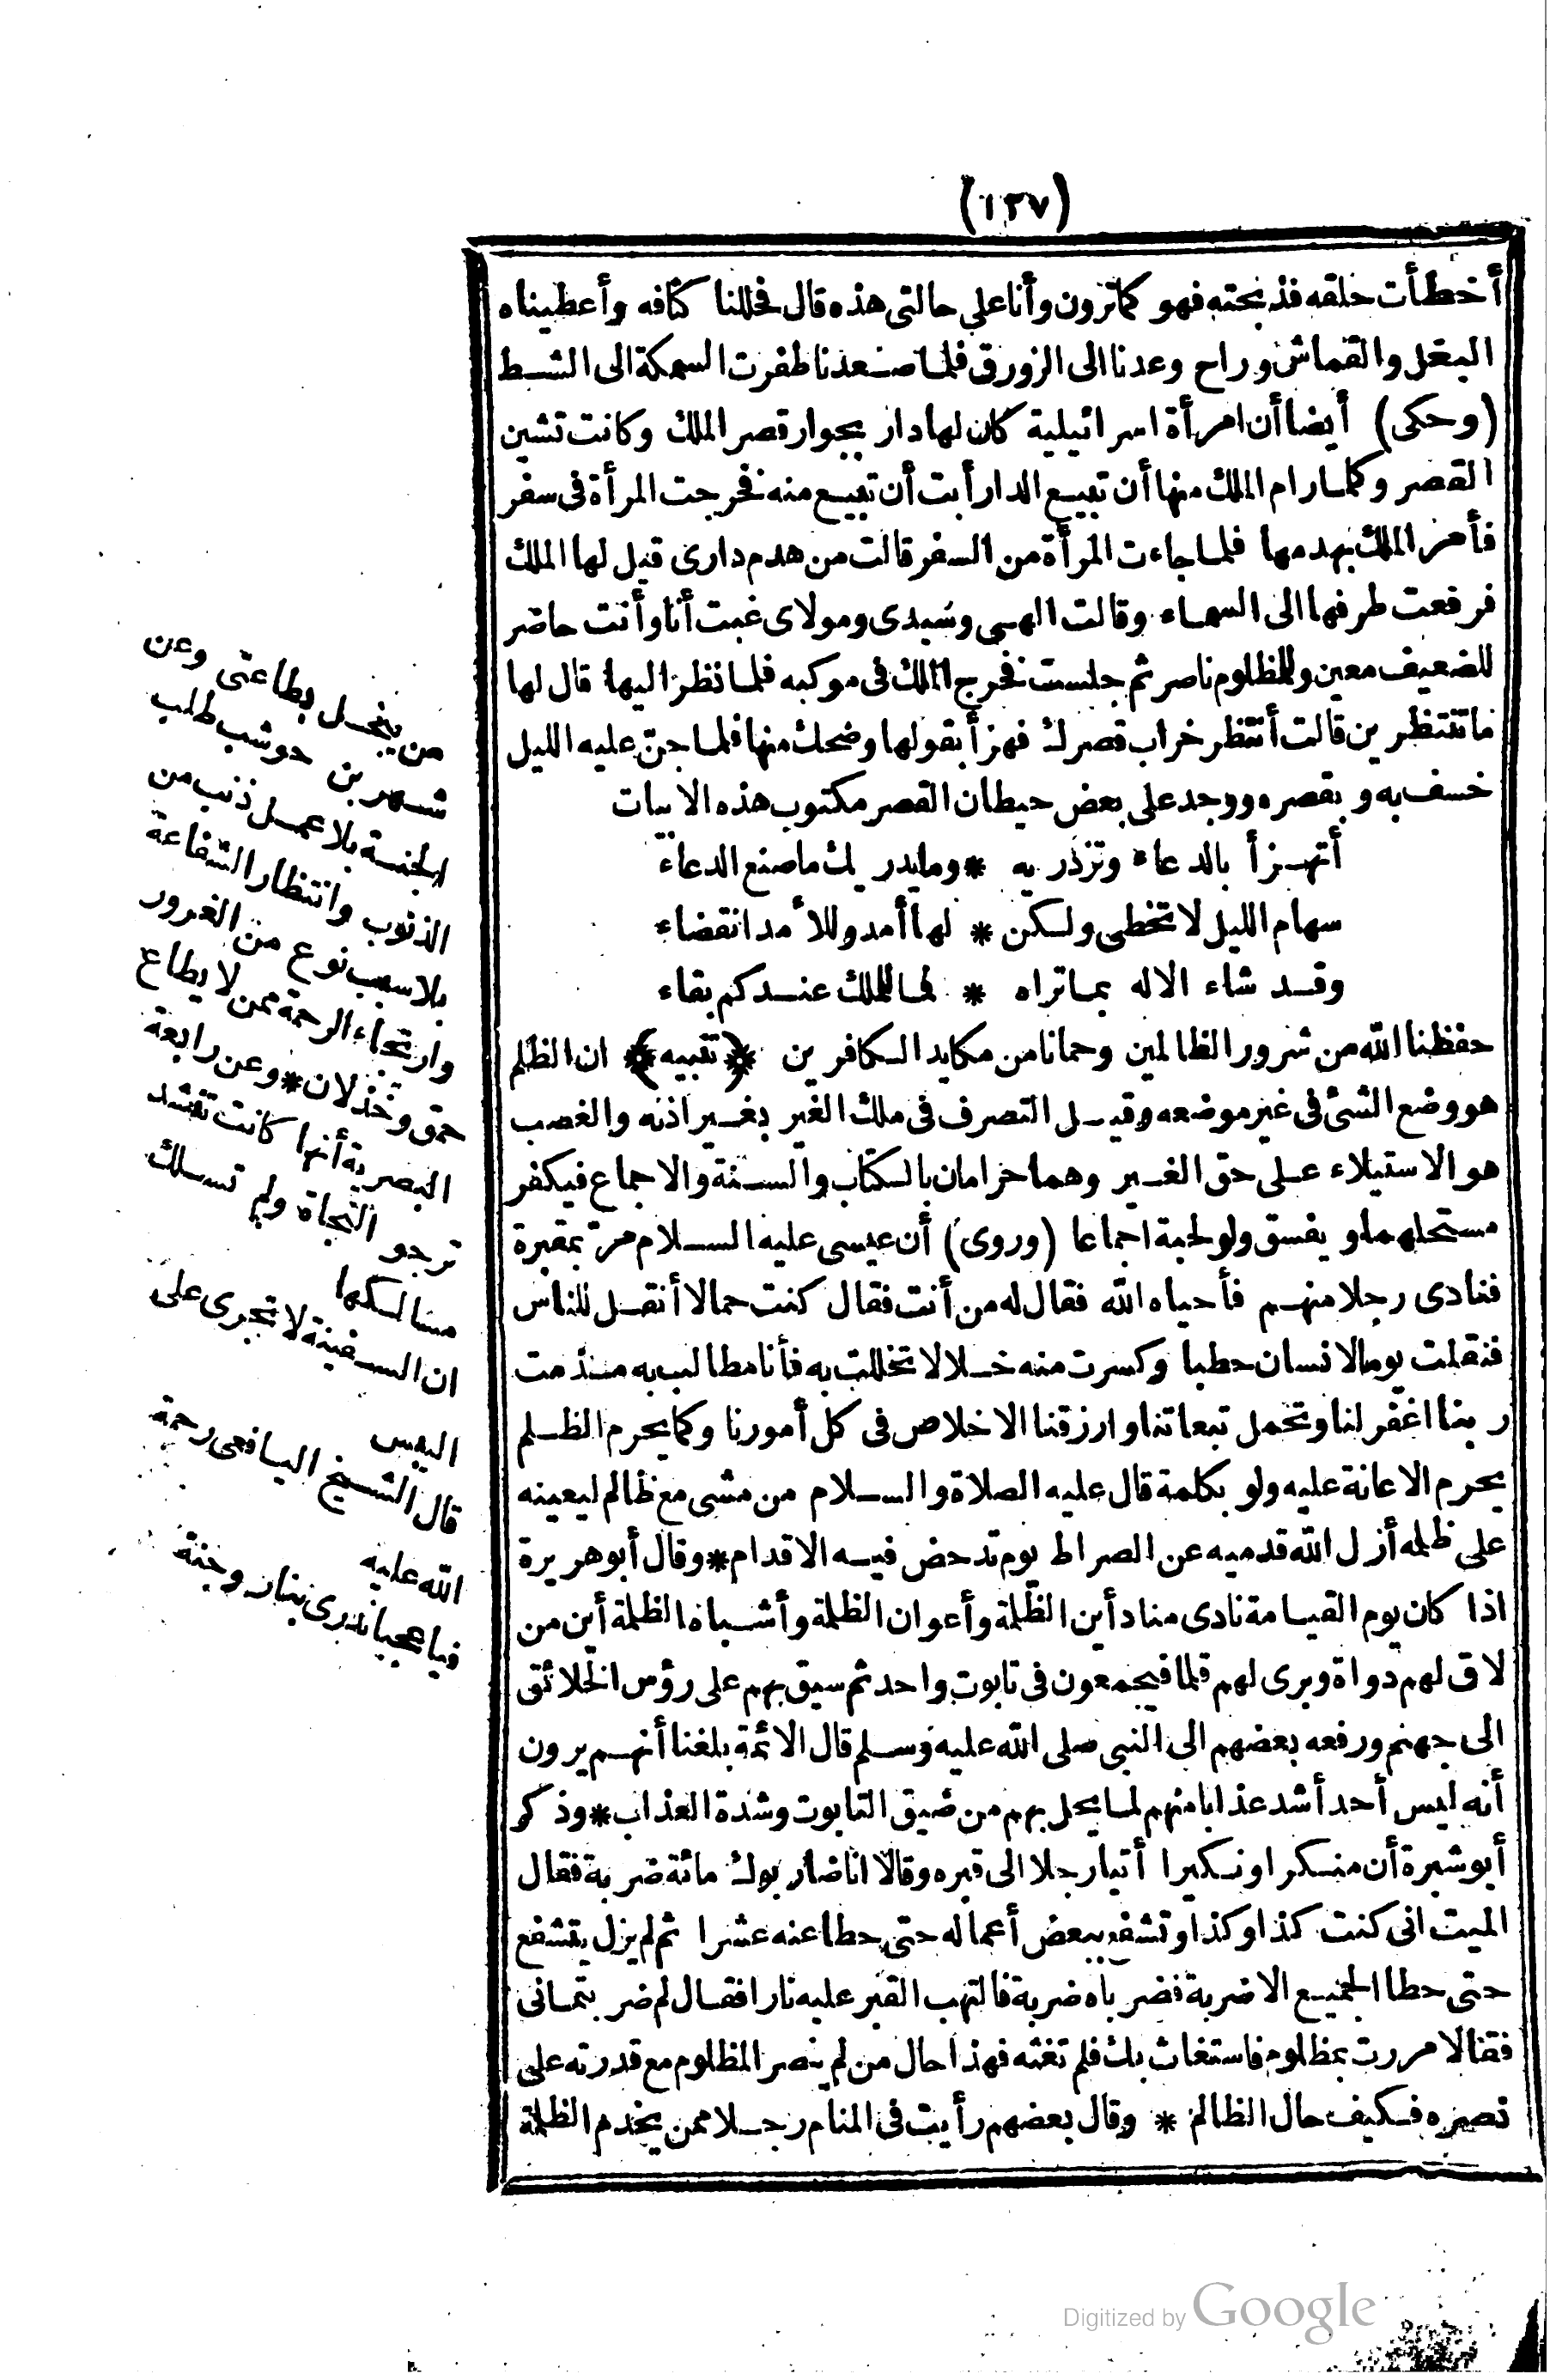 (١٣٧)
أخطأت حلقه فذبحته فهو كما ترون وأنا على حالتى هذه قال فحللنا كتافه وأعطيناه
البغل والقماش وراح وعدنا الى الزورق فلما صعدنا طفرت السمكة الى الشط
(وحكى) أيضا أن امرأة اسرائيلية كان لها دار بجوار قصر الملك وكانت تشين
القصر وكلما رام الملك منها أن تبيع الدار أبت أن تبيع منه فخرجت المرأة فى سفر
فأمر الملك بهدمها فلما جاءت المرأة من السفر قالت من هدم دارى قيل لها الملك
فرفعت طرفها الى السماء وقالت الهى وسيدى ومولاى غبت أنا وأنت حاضر
للضعيف معين وللمظلوم ناصر ثم جلست فخرج الملك فى موكبه فلما نظر اليها قال لها
ما تنتظرين قالت أنتظر خراب قصرك فهزأ بقولها وضحك منها فلما جن عليه الليل
خسف به وبقصره ووجد على بعض حيطان القصر مكتوب هذه الابيات
أتهزأ بالدعاء وتزذريه * وما يدريك ما صنع الدعاء
سهام الليل لا تخطى ولكن * لها أمد وللأمد انقضاء
وقد شاء الاله بما تراه * فما للملك عندكم بقاء
حفظنا الله من شرور الظالمين وحمانا من مكايد الكافرين ﴿تنبيه﴾ ان الظلم
هو وضع الشئ فى غير موضعه وقيل التصرف فى ملك الغير بغير اذنه والغصب
هو الاستيلاء على حق الغير وهما حرامان بالكتاب والسنة والاجماع فيكفر
مستحلهما ويفسق ولو لحبة اجماعا (وروى) أن عيسى عليه السلام مر بمقبرة
فنادى رجلا منهم فأحياه الله فقال له من أنت فقال كنت حمالا أنقل للناس
فنقلت يوما لانسان حطبا وكسرت منه خلالا تخللت به فأنا مطالب به منذ مت
ربنا اغفر لنا وتحمل تبعاتنا وارزقنا الاخلاص فى كل أمورنا وكما يحرم الظلم
يحرم الاعانة عليه ولو بكلمة قال عليه الصلاة والسلام من مشى مع ظالم ليعينه
على ظلمه أزل الله قدميه عن الصراط يوم تدحض فيه الاقدام * وقال أبو هريرة
اذا كان يوم القيامة نادى مناد أين الظلمة وأعوان الظلمة وأشباه الظلمة أين من
لاق لهم دواة وبرى لهم قلما فيجمعون فى تابوت واحد ثم سيق بهم على رؤس الخلائق
الى جهنم ورفعه بعضهم الى النبى صلى الله عليه وسلم قال الائمة بلغنا أنهم يرون
أنه ليس أحد أشد عذابا منهم لما يحل بهم من ضيق التابوت وشدة العذاب * وذكر
أبو شبرة أن منكرا ونكيرا أتيا رجلا الى قبره وقالا انا ضاربوك مائة ضربة فقال
الميت انى كنت كذا وكذا وتشفع ببعض أعماله حتى حطا عنه عشرا ثم لم يزل يتشفع
حتى حطا الجميع الا ضربة فضرباه ضربة فالتهب القبر عليه نارا فقال لم ضربتمانى
فقالا مررت بمظلوم فاستغاث بك فلم تغثه فهذا حال من لم ينصر المظلوم مع قدرته على
نصره فكيف حال الظالم * وقال بعضهم رأيت فى المنام رجلا ممن يخدم الظلمة
من يبخل بطاعتى وعن
شهر بن حوشب طلب
الجنة بلا عمل ذنب من
الذنوب وانتظار الشفاعة
بلا سبب نوع من الغرور
وارتجاء الرحمة ممن لا يطاع
حمق وخذلان * وعن رابعة
البصرية أنها كانت تنشد
ترجو النجاة ولم تسلك
مسالكها
ان السفينة لا تجرى على
اليبس
قال الشيخ اليافعى رحمة
الله عليه
فيا عجبا ندرى بنار وجنة
Digitized by Google